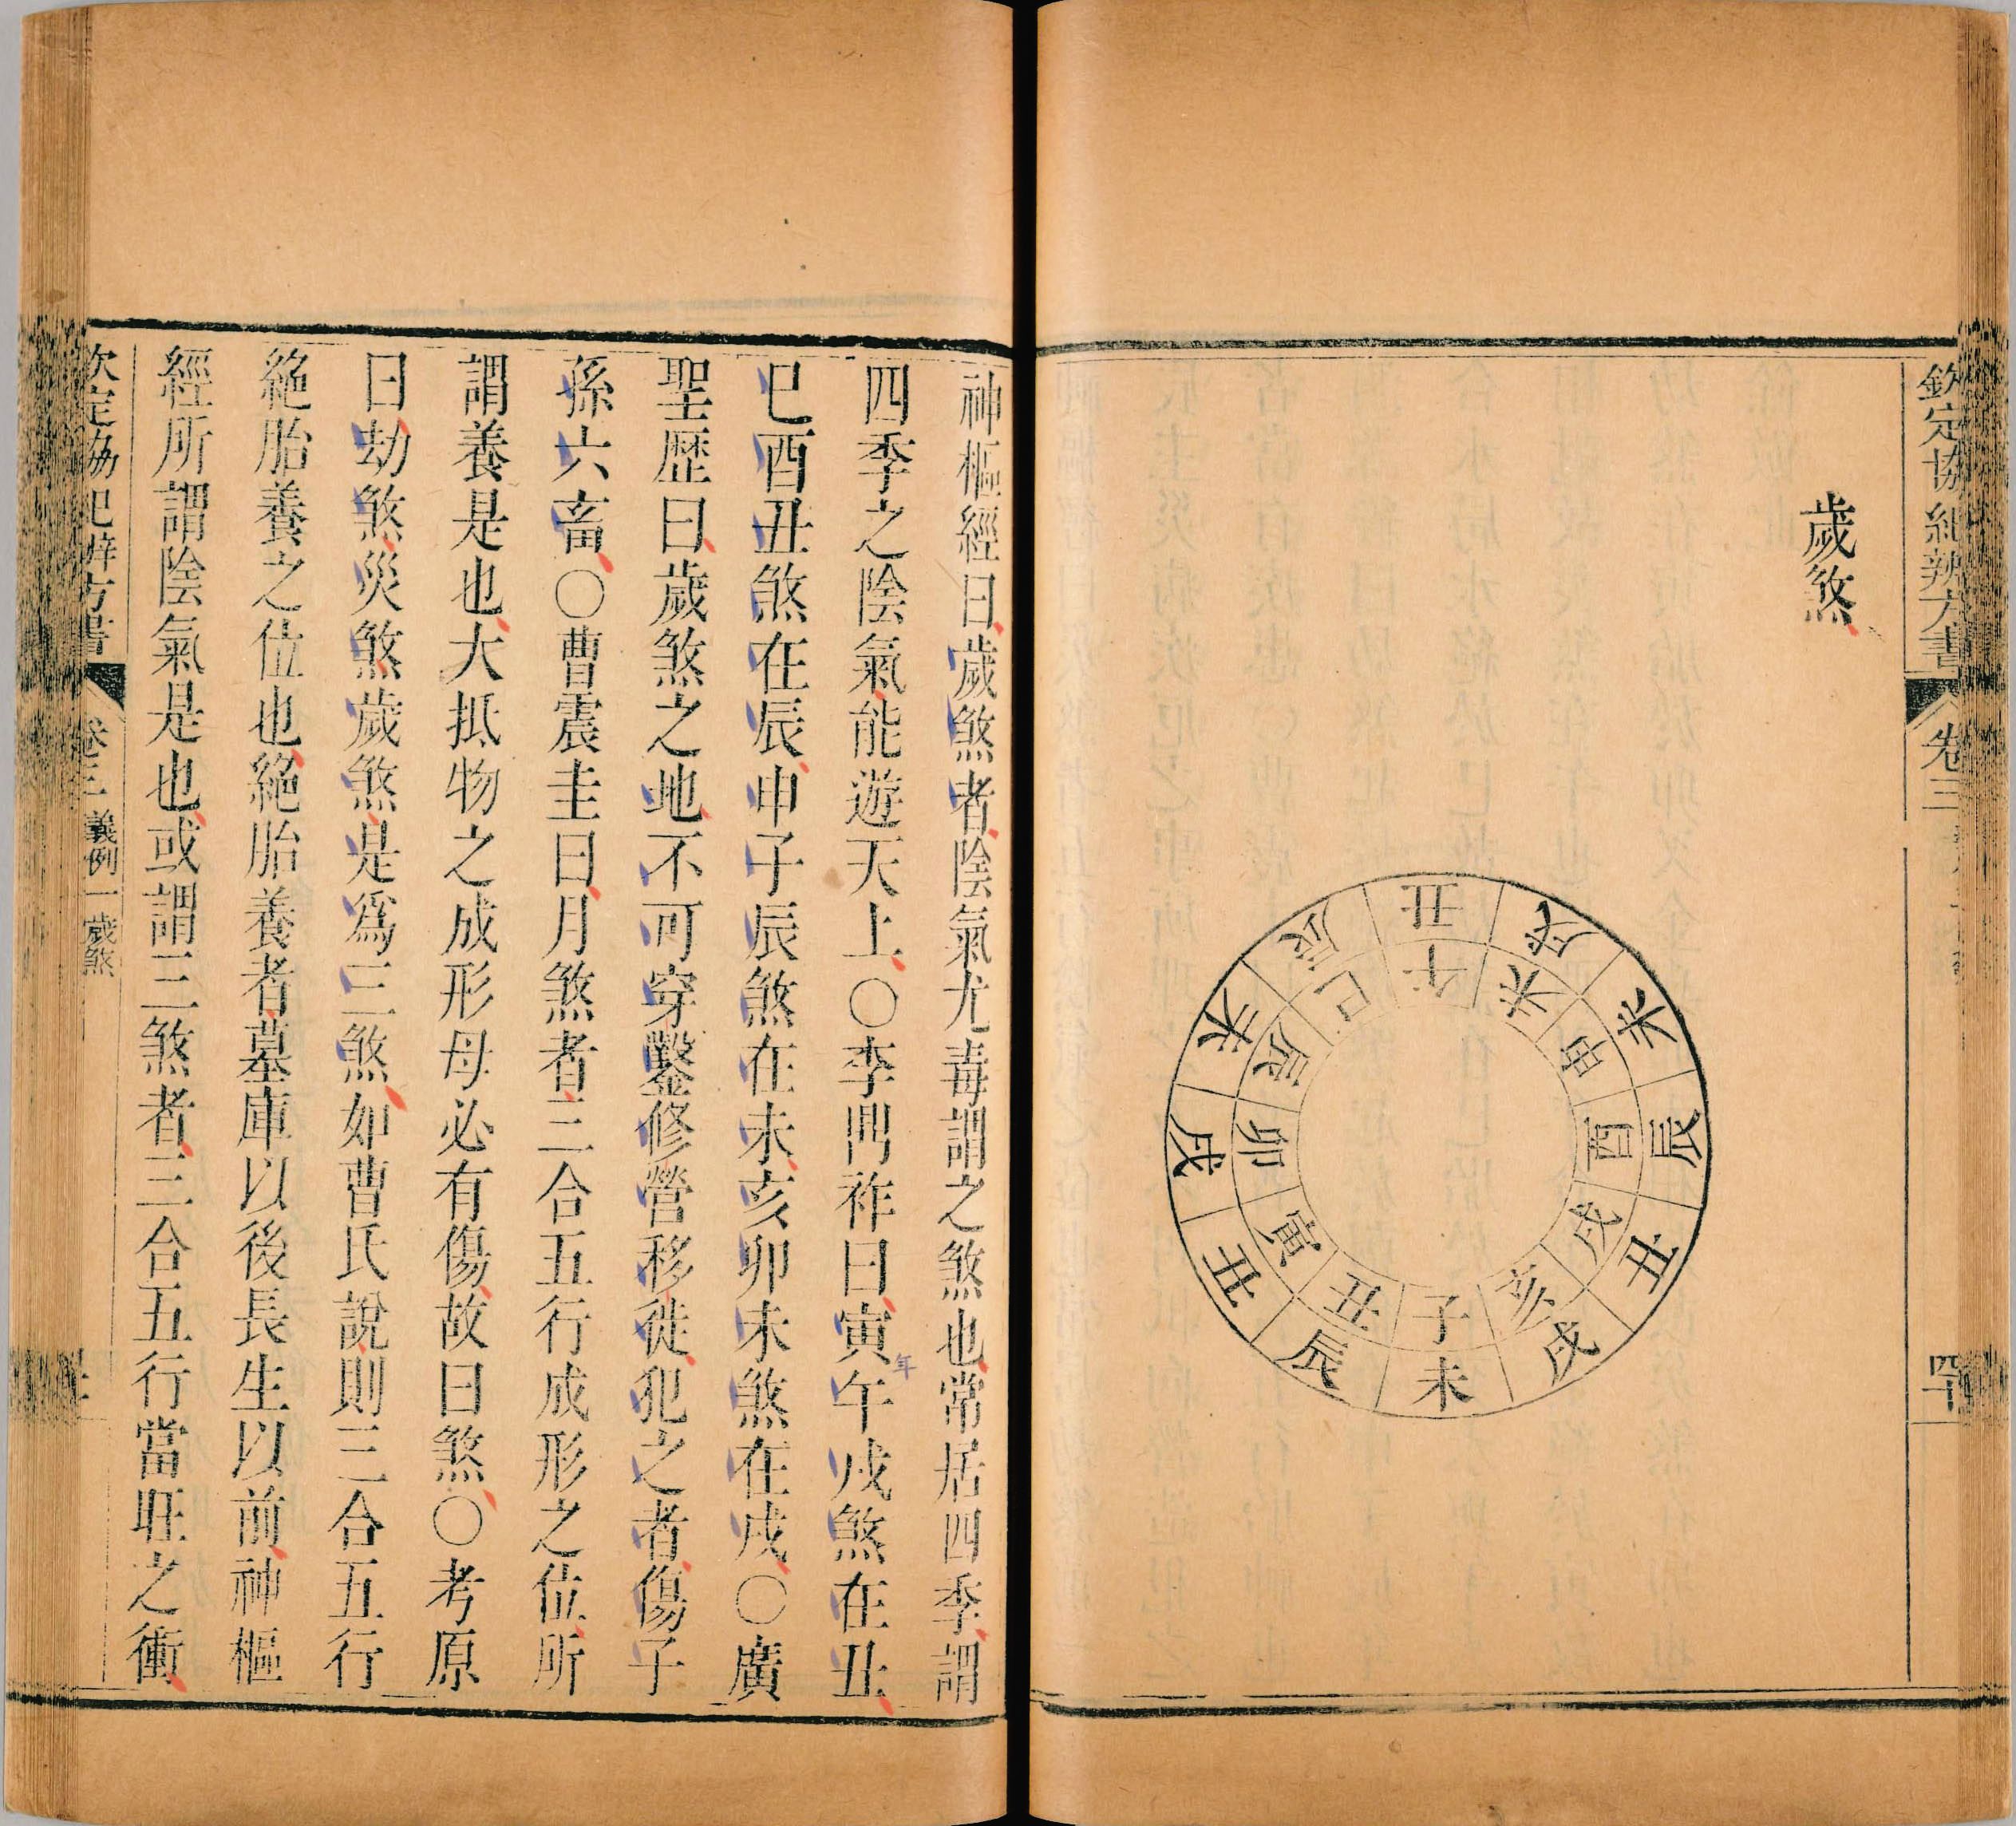 欽定協紀辨方書
卷三
四十
歲煞
丑
戌
未
辰
丑
戌
未
辰
丑
戌
未
辰
午
未
申
酉
戌
亥
子
丑
寅
卯
辰
巳
神樞經曰歲煞者陰氣尤毒謂之煞也常居四季謂
四季之陰氣能遊天上○李鼎祚曰寅午戌煞在丑
年
巳酉丑煞在辰申子辰煞在未亥卯未煞在戌○廣
聖歷曰歲煞之地不可穿鑿修營移徙犯之者傷子
孫六畜○曹震圭曰月煞者三合五行成形之位所
謂養是也大抵物之成形母必有傷故曰煞○考原
曰劫煞災煞歲煞是為三煞如曹氏說則三合五行
絕胎養之位也絕胎養者墓庫以後長生以前神樞
經所謂陰氣是也或謂三煞者三合五行當旺之衝
欽定協紀辨方書
卷三
義例一 歲煞